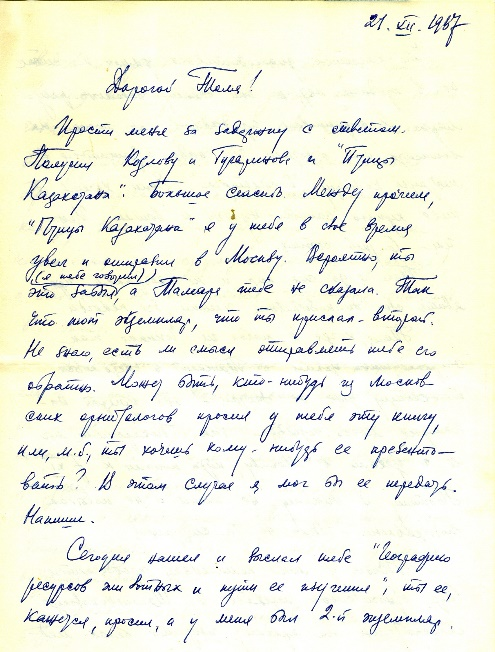 21. XII. 1987
Дорогой Толя!
Прости меня за задержку с ответом.
Получил Козлову и Турдыкинове и "Птицы
Казахстана". Большое спасибо. Между прочим,
"Птицы Казахстана" я у тебя в свое время
увез и отправил в Москву. Вероятно, ты
(я тебе говорил)
это забыл, а Тамара тебе не сказала. Так
что тот экземпляр, что ты прислал - второй.
Не знаю, есть ли смысл отправлять тебе его
обратно. Может быть, кто-нибудь из москов-
ских орнитологов просил у тебя эту книгу,
или, м.б, ты хочешь кому-нибудь ее презенто-
вать? В этом случае я мог бы ее передать.
Напиши.
Сегодня нашел и выслал тебе "География
ресурсов животных и пути ее изучения", ты ее,
кажется, просил, а у меня был 2-й экземпляр.